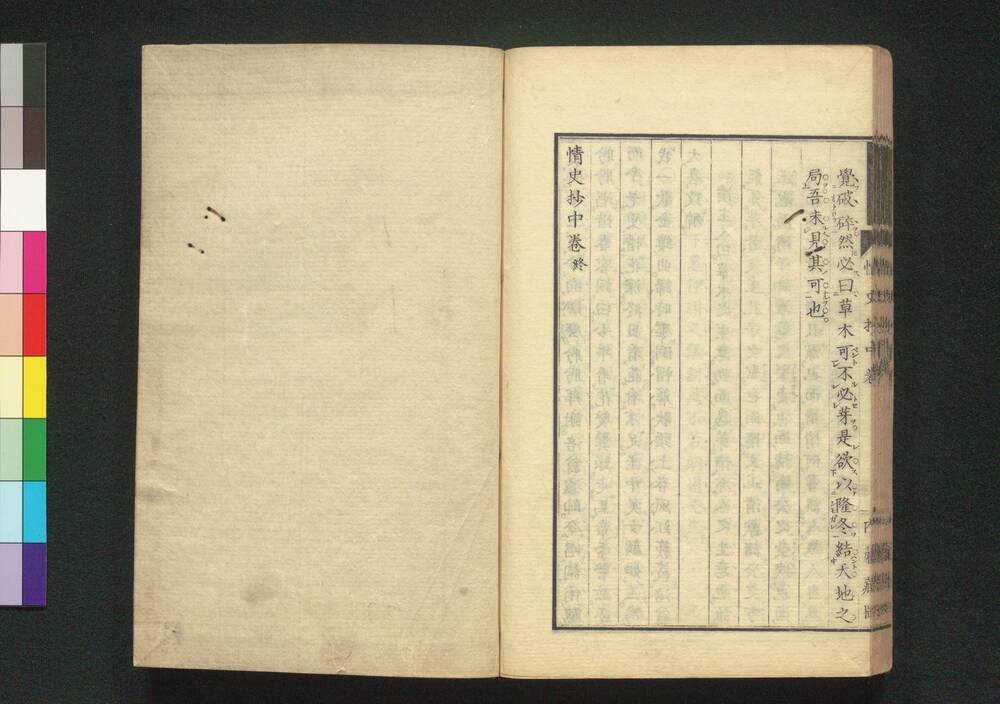 覺破砕然必曰草木可不必芽是欲以隆冬結天地之
局吾未見其可也
情史抄中巻終
情史抄中巻